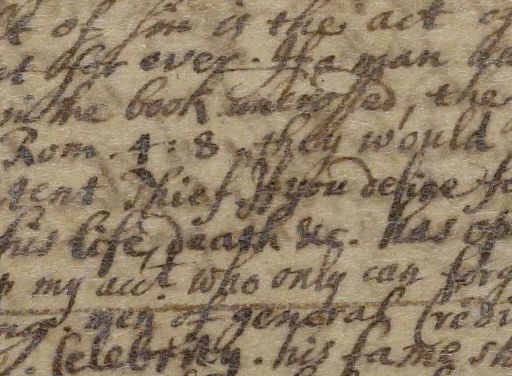 of sin is the act of
for ever. If a man
in the book uncrossed, the
Rom. 4:8. they would
tent thief. If you desire
his life, death &c. has
my acct. who only can forg
men of general Credi
Celebrity. his fame sh